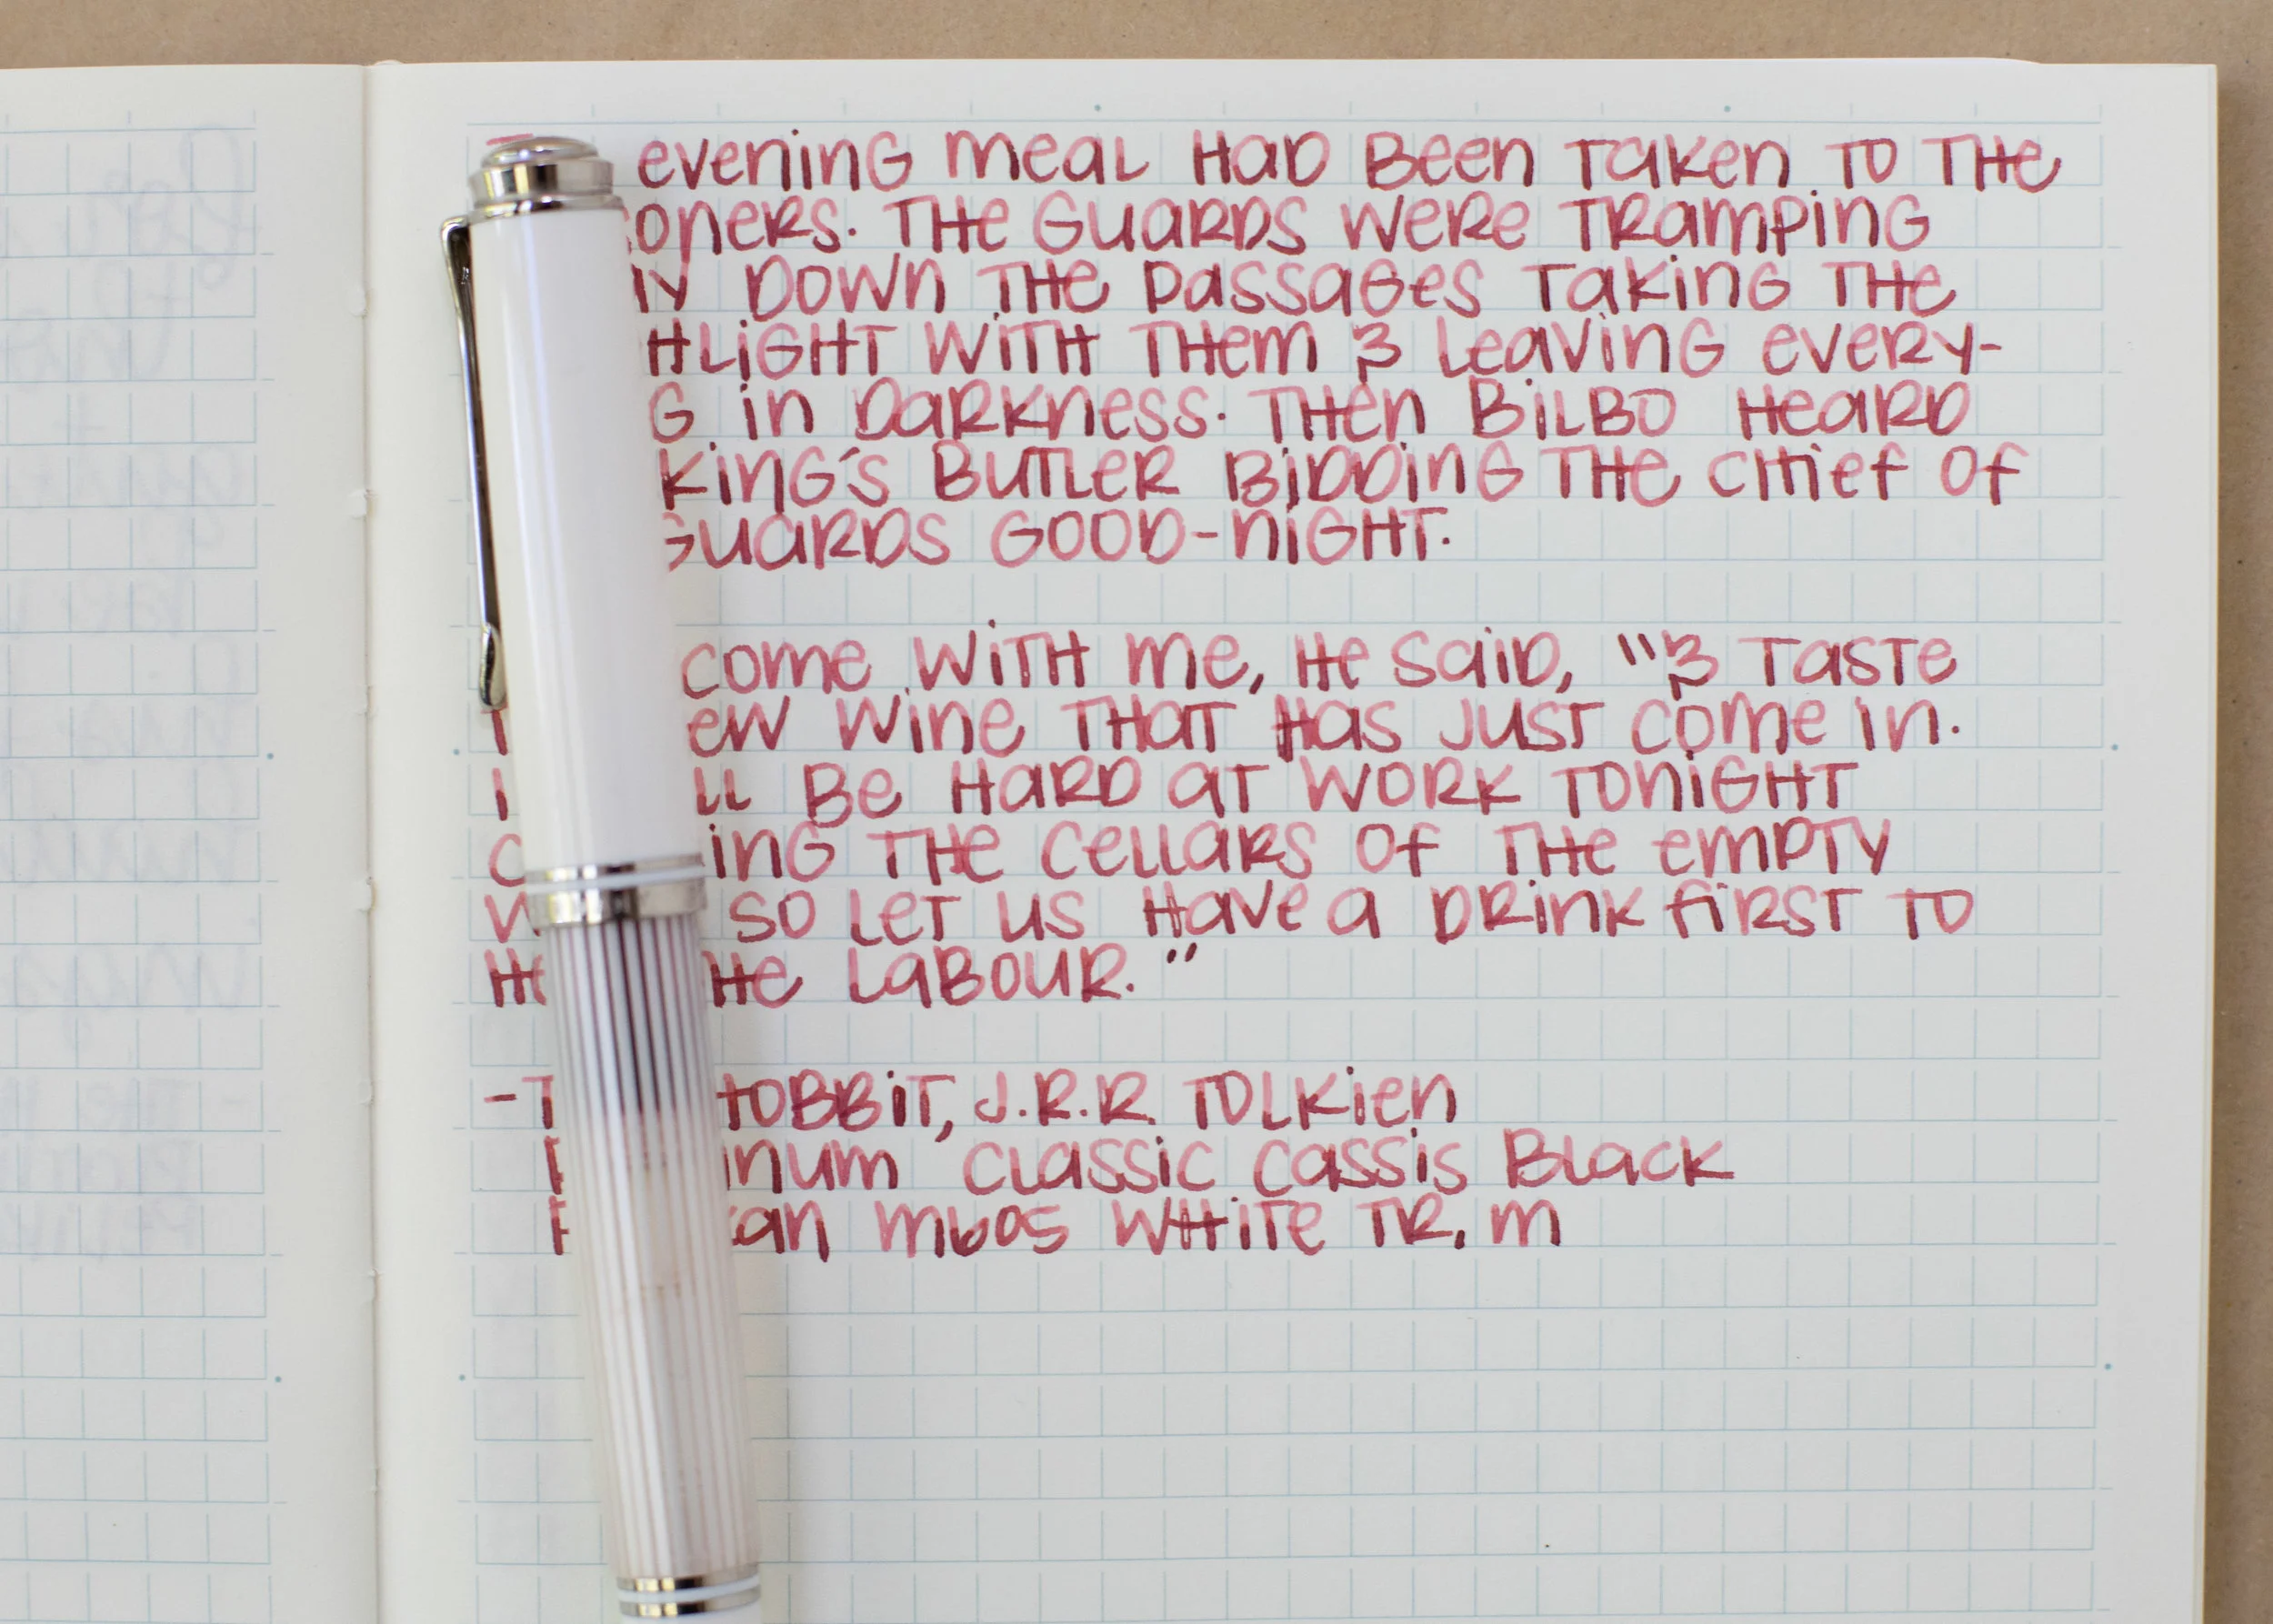 evening meal had been taken to the
The guards were tramping
down the passages taking the
with them & leaving every-
in darkness. Then Bilbo heard
king's butler bidding the chief of
guards good-night.
come with me, he said, "& taste
wine that has just come in.
be hard at work tonight
the cellars of the empty
so let us have a drink first to
labour."
Hobbit, J.R.R. Tolkien
Classic Cassis Black
M605 White Tr. M